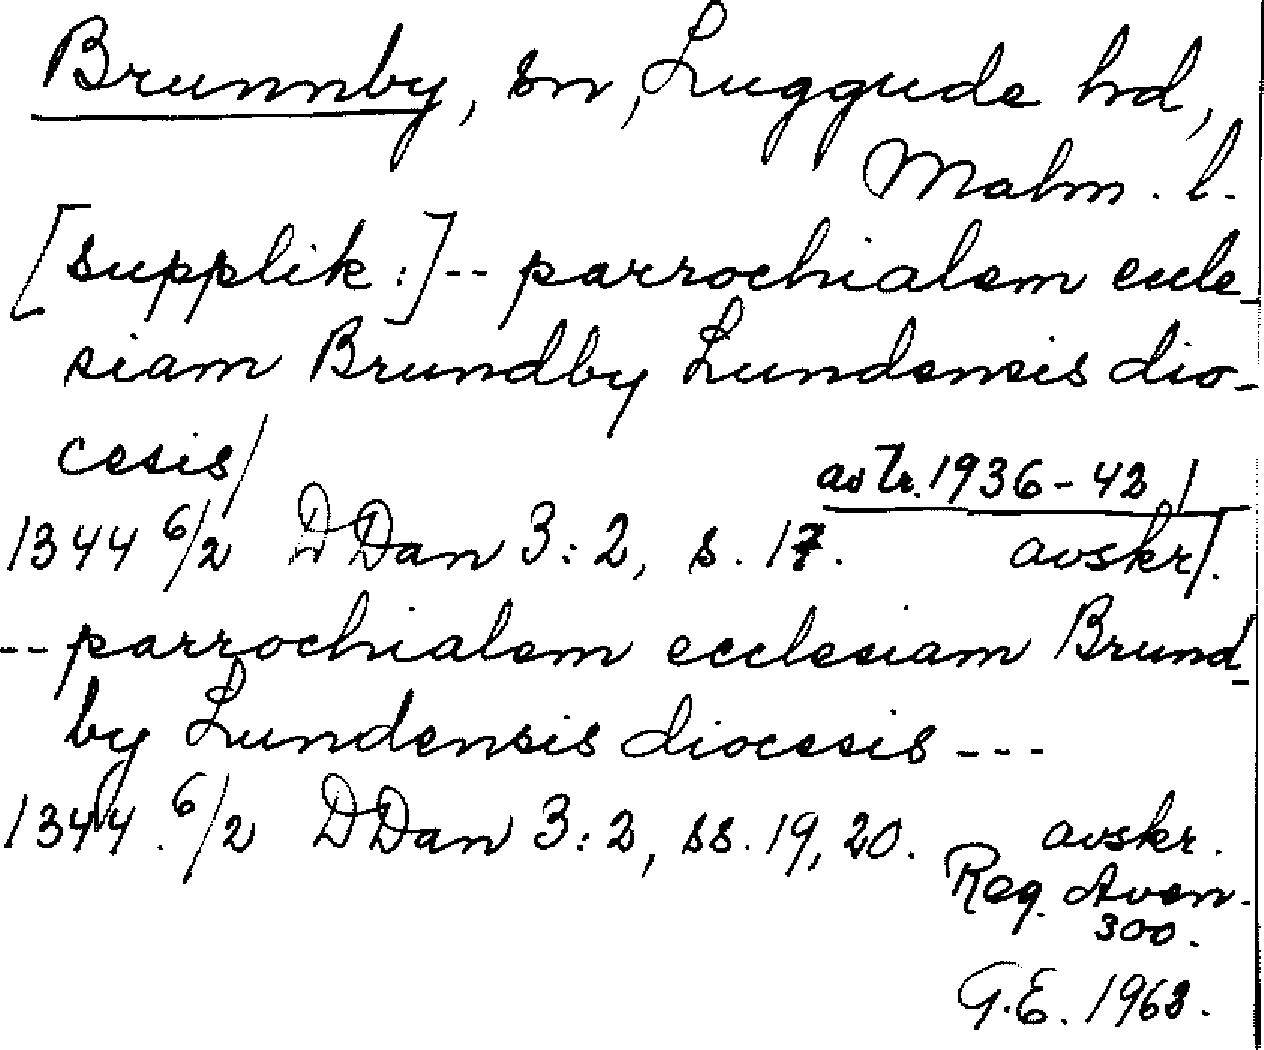 Brunnby, sn, Luggude hd,
Malm. l.
[supplik:]-- parrochialem eccle-
siam Brundby Lundensis dio-
cesis/
avtr. 1936-42 /
1344 6/2 DDan 3:2, s. 17. avskr/.
-- parrochialem ecclesiam Brund-
by Lundensis diocesis ---
1344. 6/2 DDan 3:2, ss. 19, 20. avskr.
Reg. Aven.
300.
G.E. 1963.